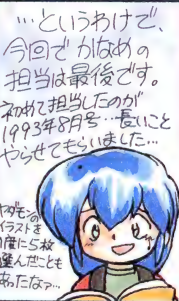 …というわけで、
今回でかなめの
担当は最後です。
初めて担当したのが
1993年8月号…長いこと
やらせてもらいました…
ヤダモンの
イラストを
1度に5枚
選んだことも
あったなァ…